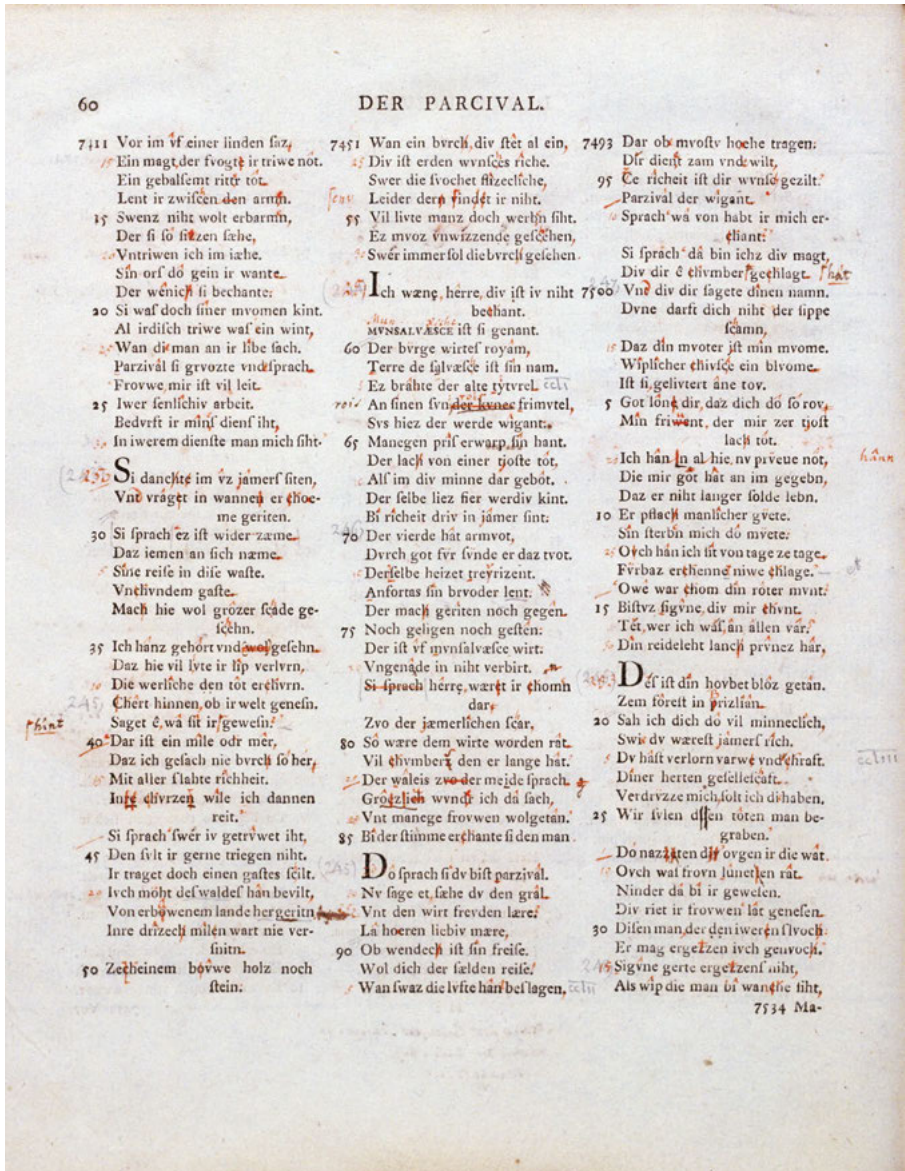 60
DER PARCIVAL.
7411 Vor im vf einer linden ſaz,
Ein magt, der fvogte ir triwe not.
Ein gebalſemt ritter tot
Lent ir zwiſcen den armn.
15 Swenz niht wolt erbarmn,
Der ſi ſo ſitzen ſæhe,
Vntriwen ich im iæhe.
Sin orſ do gein ir wante.
Der wenich ſi bechante.
20 Si waſ doch ſiner mvomen kint.
Al irdiſch triwe waſ ein wint,
Wan di man an ir libe ſach.
Parzivâl ſi grvozte vnd ſprach.
Frovwe, mir iſt vil leit
25 Iwer ſenlichiv arbeit.
Bedvrft ir minſ dienſ iht,
In iwerem dienſte man mich ſiht.
Si danchte im vz jamerſ ſiten,
Vnt vraget in wannen er choe-
me geriten.
30 Si ſprach ez iſt wider zæme
Daz iemen an ſich næme
Sine reiſe in diſe waſte.
Vnchvndem gaſte
Mach hie wol grozer ſcade ge-
ſcehn.
35 Ich hanz gehôrt vnd wol geſehn
Daz hie vil lvte ir lip verlvrn,
Die werliche den tôt erchvrn.
Chert hinnen, ob ir welt geneſn.
Saget ê, wâ ſit ir geweſn.
phint
40 Dar iſt ein mile odr mêr,
Daz ich geſach nie bvrch ſo her,
Mit aller ſlahte richheit.
Inre chvrzen wile ich dannen
reit.
Si ſprach ſwer iv getrvwet iht,
45 Den ſvlt ir gerne triegen niht.
Ir traget doch einen gaſtes ſcilt.
Ivch môht deſ waldeſ hân bevilt,
Von erbowenem lande her geritn
Inre drizech milen wart nie ver-
ſnitn.
50 Ze cheinem bovwe holz noch
ſtein.
7451 Wan ein bvrch, div ſtêt al ein,
Div iſt erden wvnſces riche.
Swer die ſvochet flizecliche,
Leider dern findet ir niht.
55 Vil livte manz doch werbn ſiht.
Ez mvoz vnwizzende geſcehen,
Swer immer ſol die bvrch geſehen
Ich wæne, herre, div iſt iv niht
bechant.
MVNSALVÆSCE iſt ſi genant.
60 Der bvrge wirteſ royâm,
Terre de ſalvæſce iſt ſin nam.
Ez brahte der alte tytvrel
An ſinen ſvn der kvnec frimvtel,
Svs hiez der werde wigant.
65 Manegen priſ erwarp ſin hant.
Der lach von einer tjoſte tôt,
Alſ im div minne dar gebôt.
Der ſelbe liez fier werdiv kint.
Bi richeit driv in jâmer ſint.
70 Der vierde hât armvot,
Dvrch got fvr ſvnde er daz tvot.
Derſelbe heizet treyrizent.
Anfortas ſin brvoder lent.
Der mach geriten noch gegen
75 Noch geligen noch geſten.
Der iſt vf mvnſalvæſce wirt.
Vngenade in niht verbirt.
Si ſprach herre, wæret ir chomn
dar,
Zvo der jæmerlichen ſcar,
80 Sô wære dem wirte worden rât
Vil chvmberſ den er lange hât.
Der waleis zvo der meide ſprach
Grôezlich wvndr ich dâ ſach,
Vnt manege frovwen wolgetân.
85 Bi der ſtimme erchante ſi den man
Do ſprach ſi dv biſt parzival.
Nv ſage et, ſæhe dv den grâl
Vnt den wirt frevden lære.
La hoeren liebiv mære,
90 Ob wendech iſt ſin freiſe.
Wol dich der ſælden reiſe.
Wan ſwaz die lvfte hân beſlagen,
7493 Dar ob mvoſtv hoehe tragen.
Dir dient zam vnde wilt,
95 Ze richeit iſt dir wvnſc gezilt.
Parzival der wigant
Sprach wa von habt ir mich er-
chant.
Si ſprach dâ bin ichz div magt,
Div dir ê chvmber gechlagt
7500 Vnd div dir ſagete dinen namn.
Dvne darft dich niht der ſippe
ſcamn,
Daz din mvoter iſt min mvome.
Wiplicher chivſce ein blvome
Iſt ſi, gelivtert âne tov.
5 Got lône dir, daz dich do ſo rov
Min friwent, der mir zer tjoſt
lach tôt.
Ich hân in al hie, nv prveve nôt,
hânn
Die mir gôt hât an im gegebn,
Daz er niht langer ſolde lebn.
10 Er pflach manlicher gvete.
Sin ſterbn mich do mvete.
Ovch hân ich ſit von tage ze tage
Fvrbaz erchenne niwe chlage.
Owê war chom din rôter mvnt.
15 Biſtvz ſigvne, div mir chvnt
Têt, wer ich waſ, ân allen vâr.
Din reideleht lanch prvnez hâr,
Deſ iſt din hovbet blôz getân.
Zem fôreſt in prizlian
20 Sah ich dich do vil minneclich,
Swie dv wæreſt jâmerſ rich.
Dv hâſt verlorn varwe vnd chraft.
Diner herten geſelleſcaft
Verdrvzze mich, ſolt ich di haben,
25 Wir ſvlen diſen tôten man be-
graben.
Do nazzten div ovgen ir die wât
Ovch waſ frovn lûneten rât
Ninder dâ bi ir geweſen.
Div riet ir frovwen lât geneſen
30 Diſen man, der den iweren ſlvoch.
Er mag ergetzen ivch genvoch.
Sigvne gerte ergetzenſ niht,
Als wip die man bi wanche ſiht,
7534 Ma-